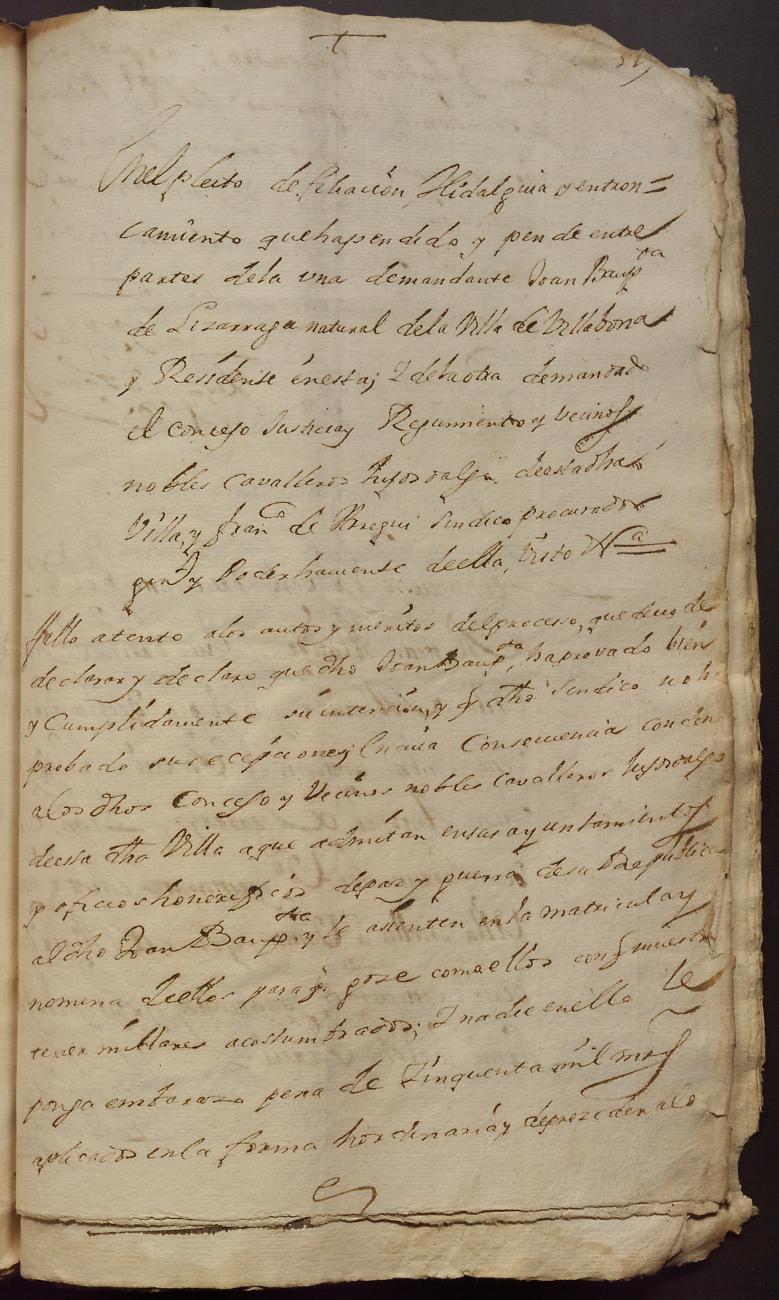 +
Enel pleito de filiacion, Hidalguia y entron=
camiento que hapendido y pende entre
partes dela vna demandante Joan Baupta
de Lizarraga natural dela Villa de Villabona
y Residente enesta; I dela otra demandado
el concejo Justicia y Regimiento y vecinos
nobles cavalleros hijosdalgo deesta dha
Villa, y franco de Yrregui sindico procurador
genl y Poderhaviente deella, Visto &a
fallo atento alos autos y meritos del proceso, que devo de
declarar y declaro que dho Joan Baupta, haprovado bien
y Cumplidamente su intencion, y q dho Sindico no ha
probado sus ecepciones; En cuia Consecuencia conden
alos dhos Concejo y Vecinos nobles cavalleros hijosdalgo
deesta dha Villa aque admitan ensus ayuntamientos
y oficios honorificos depaz y guerra desu Republica
al dho Joan Baupta y le asienten en la matricula y
nomina deellos para q goze como ellos con q muestre
tener millares acostumbrados; I nadie enello le
ponga embarazo pena de Zinquenta mil mrs
aplicados enla forma hordinaria, y deprezederalo